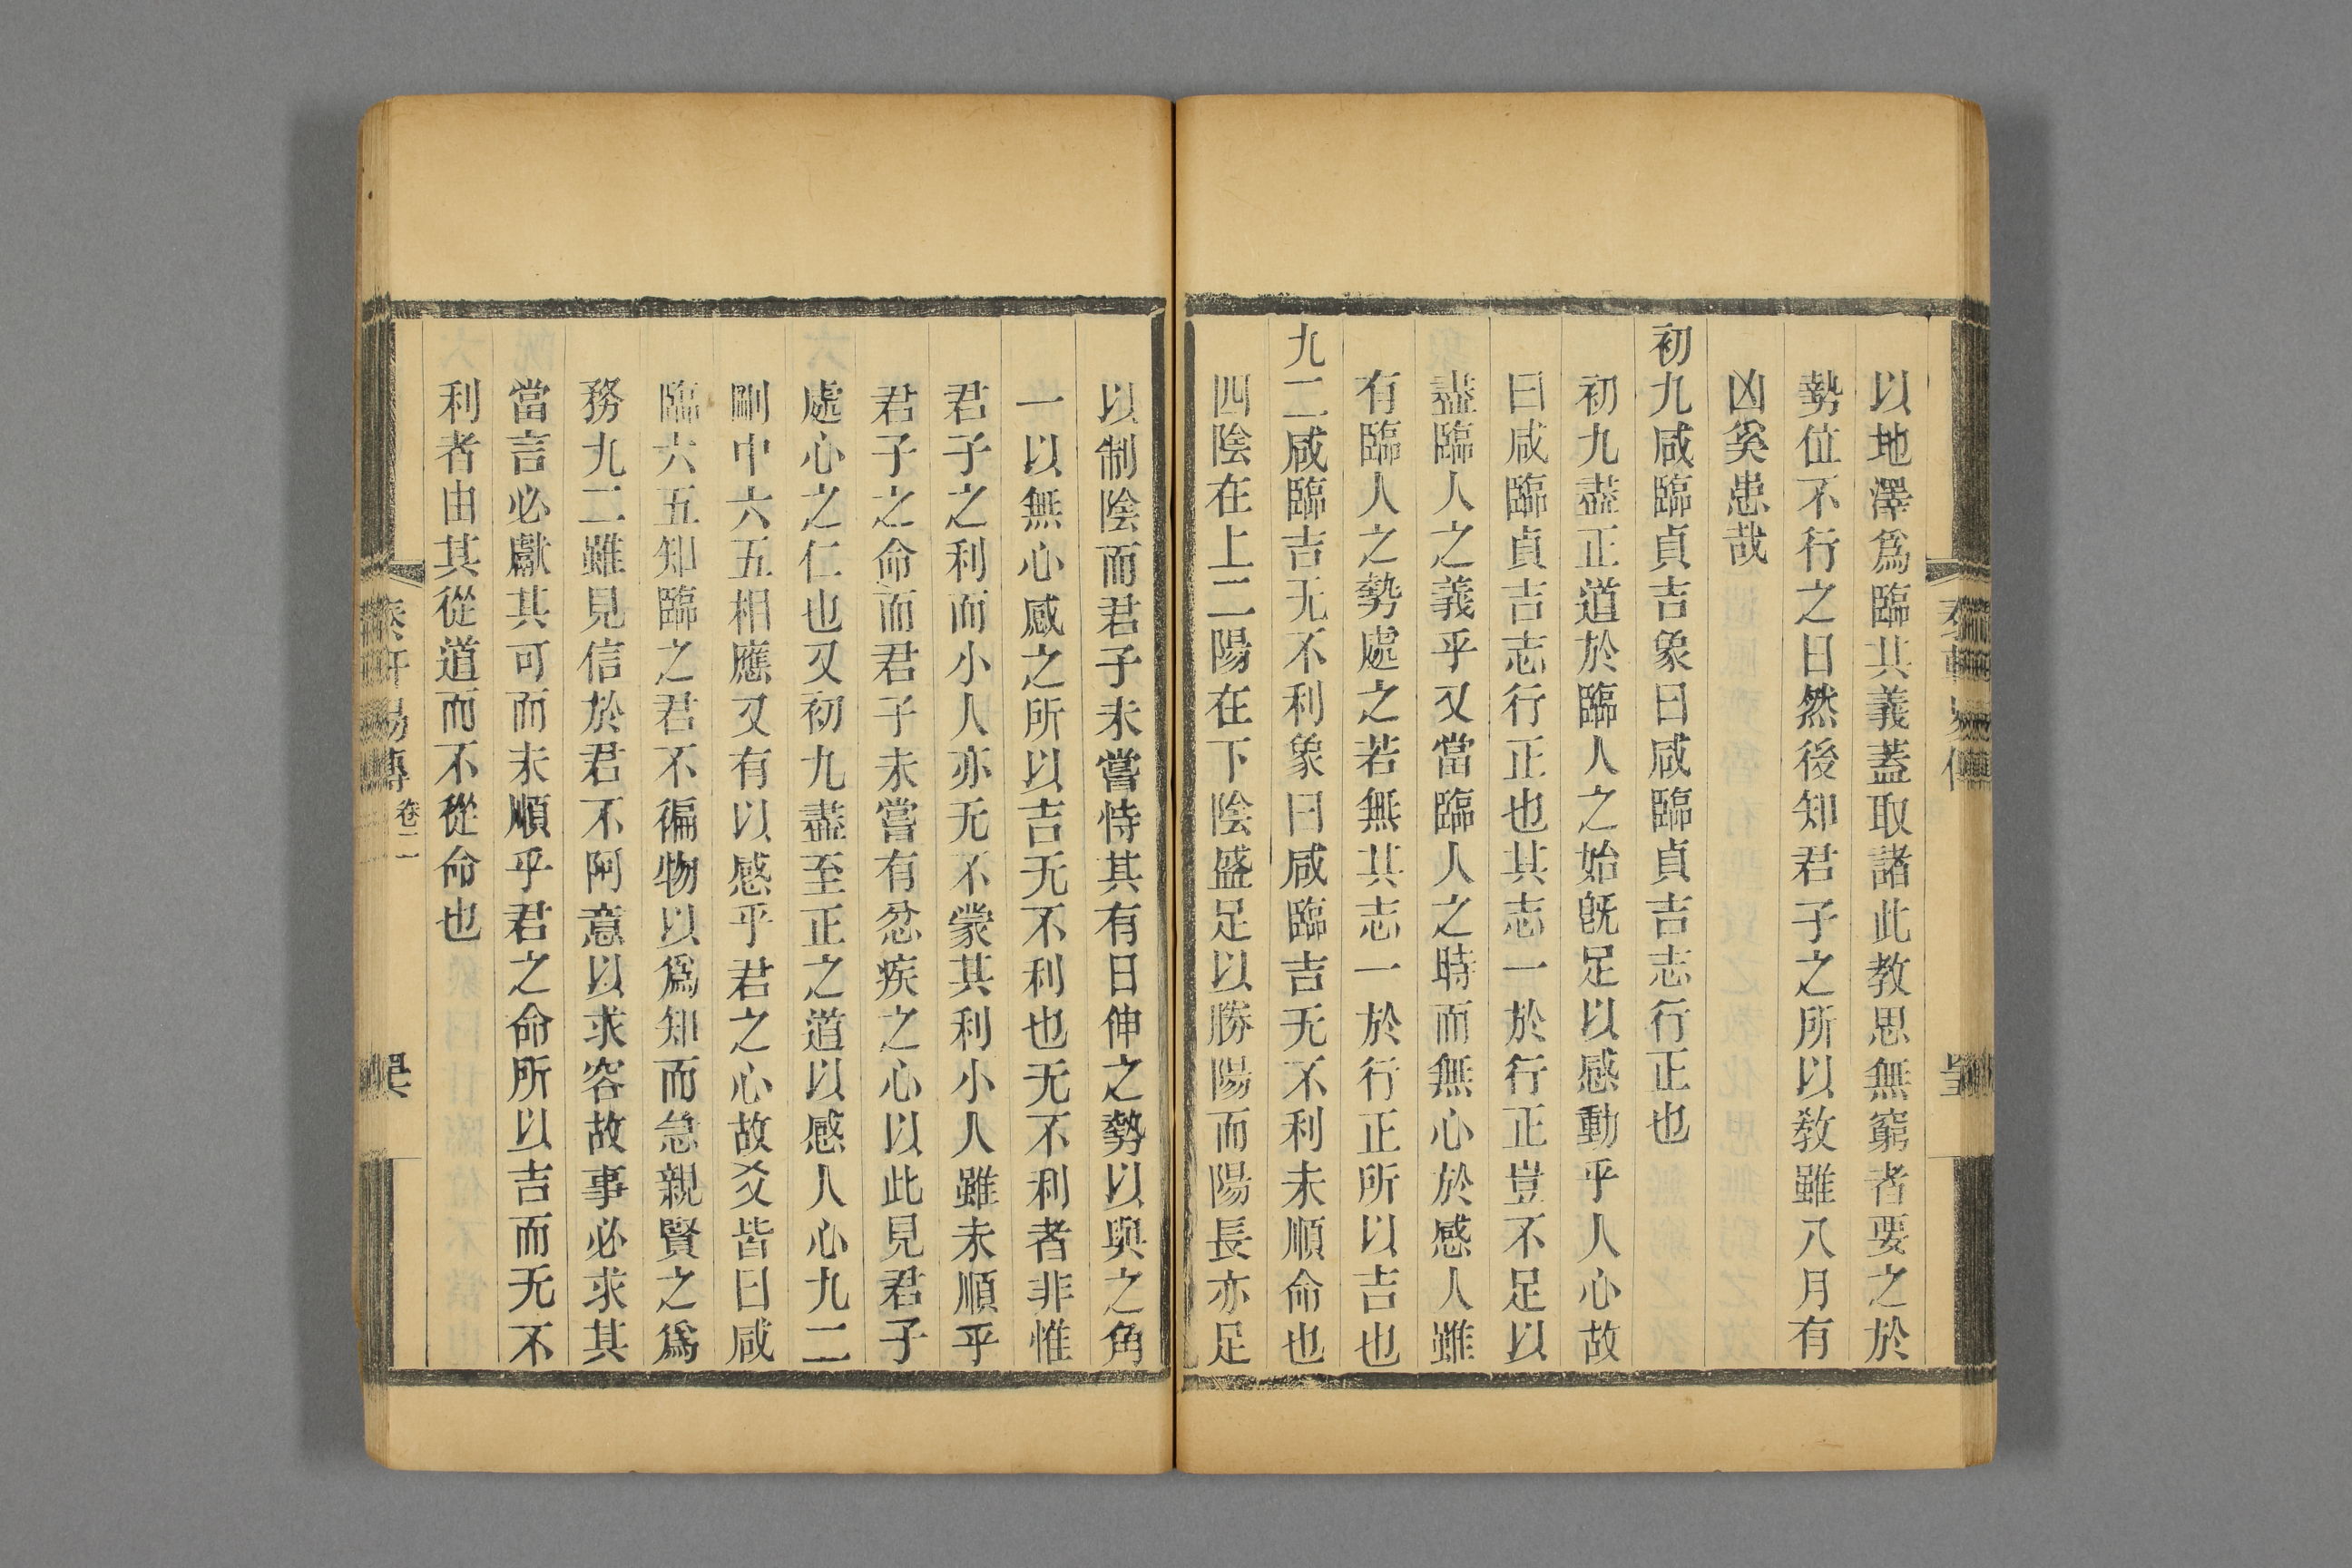 以地澤爲臨其義蓋取諸此教思無窮者要之於
勢位不行之日然後知君子之所以敎雖八月有
凶奚患哉
初九咸臨貞吉象曰咸臨貞吉志行正也
初九盡正道於臨人之始旣足以感動乎人心故
曰咸臨貞吉志行正也其志一於行正豈不足以
盡臨人之義乎又當臨人之時而無心於感人雖
有臨人之勢處之若無其志一於行正所以吉也
九二咸臨吉无不利象曰咸臨吉无不利未順命也
四陰在上二陽在下陰盛足以勝陽而陽長亦足
以制陰而君子未嘗恃其有日伸之勢以與之角
一以無心感之所以吉无不利也无不利者非惟
君子之利而小人亦无不蒙其利小人雖未順乎
君子之命而君子未嘗有忿疾之心以此見君子
處心之仁也又初九盡至正之道以感人心九二
剛中六五相應又有以感乎君之心故爻皆曰咸
臨六五知臨之君不徧物以爲知而急親賢之爲
務九二雖見信於君不阿意以求容故事必求其
當言必獻其可而未順乎君之命所以吉而无不
利者由其從道而不從命也
易傳 卷二